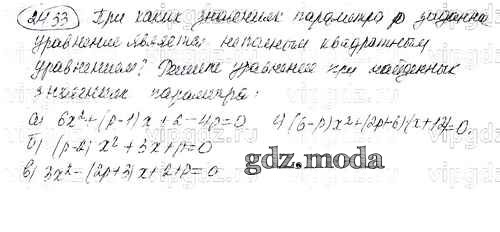 24.33 При каких значениях параметра p заданное
уравнение является неполным квадратным
уравнением? Решите уравнение при найденных
значениях параметра:
а) 6x²+(p-1)x+2-4p=0 г) (6-p)x²+(2p+6)(x+12)=0.
б) (p-2)x²+3x+p=0
в) 3x²-(2p+3)x+2+p=0
gdz.moda